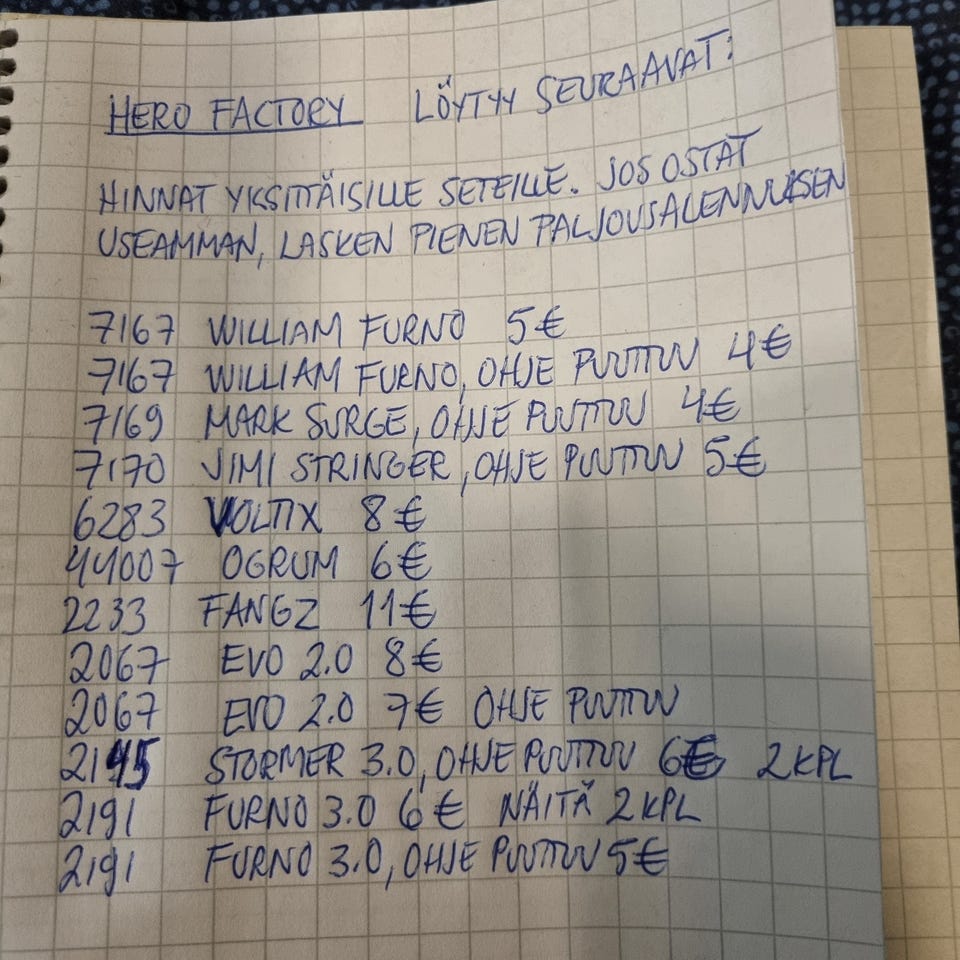 HERO FACTORY LÖYTYY SEURAAVAT:
HINNAT YKSITTÄISILLE SETEILLE. JOS OSTAT
USEAMMAN, LASKEN PIENEN PALJOUSALENNUKSEN
7167 WILLIAM FURNO 5€
7167 WILLIAM FURNO, OHJE PUUTTUU 4€
7169 MARK SURGE, OHJE PUUTTUU 4€
7170 JIMI STRINGER, OHJE PUUTTUU 5€
6283 VOLTIX 8€
44007 OGRUM 6€
2233 FANGZ 11€
2067 EVO 2.0 8€
2067 EVO 2.0 7€ OHJE PUUTTUU
2145 STORMER 3.0, OHJE PUUTTUU 6€ 2 KPL
2191 FURNO 3.0 6€ NÄITÄ 2 KPL
2191 FURNO 3.0, OHJE PUUTTUU 5€